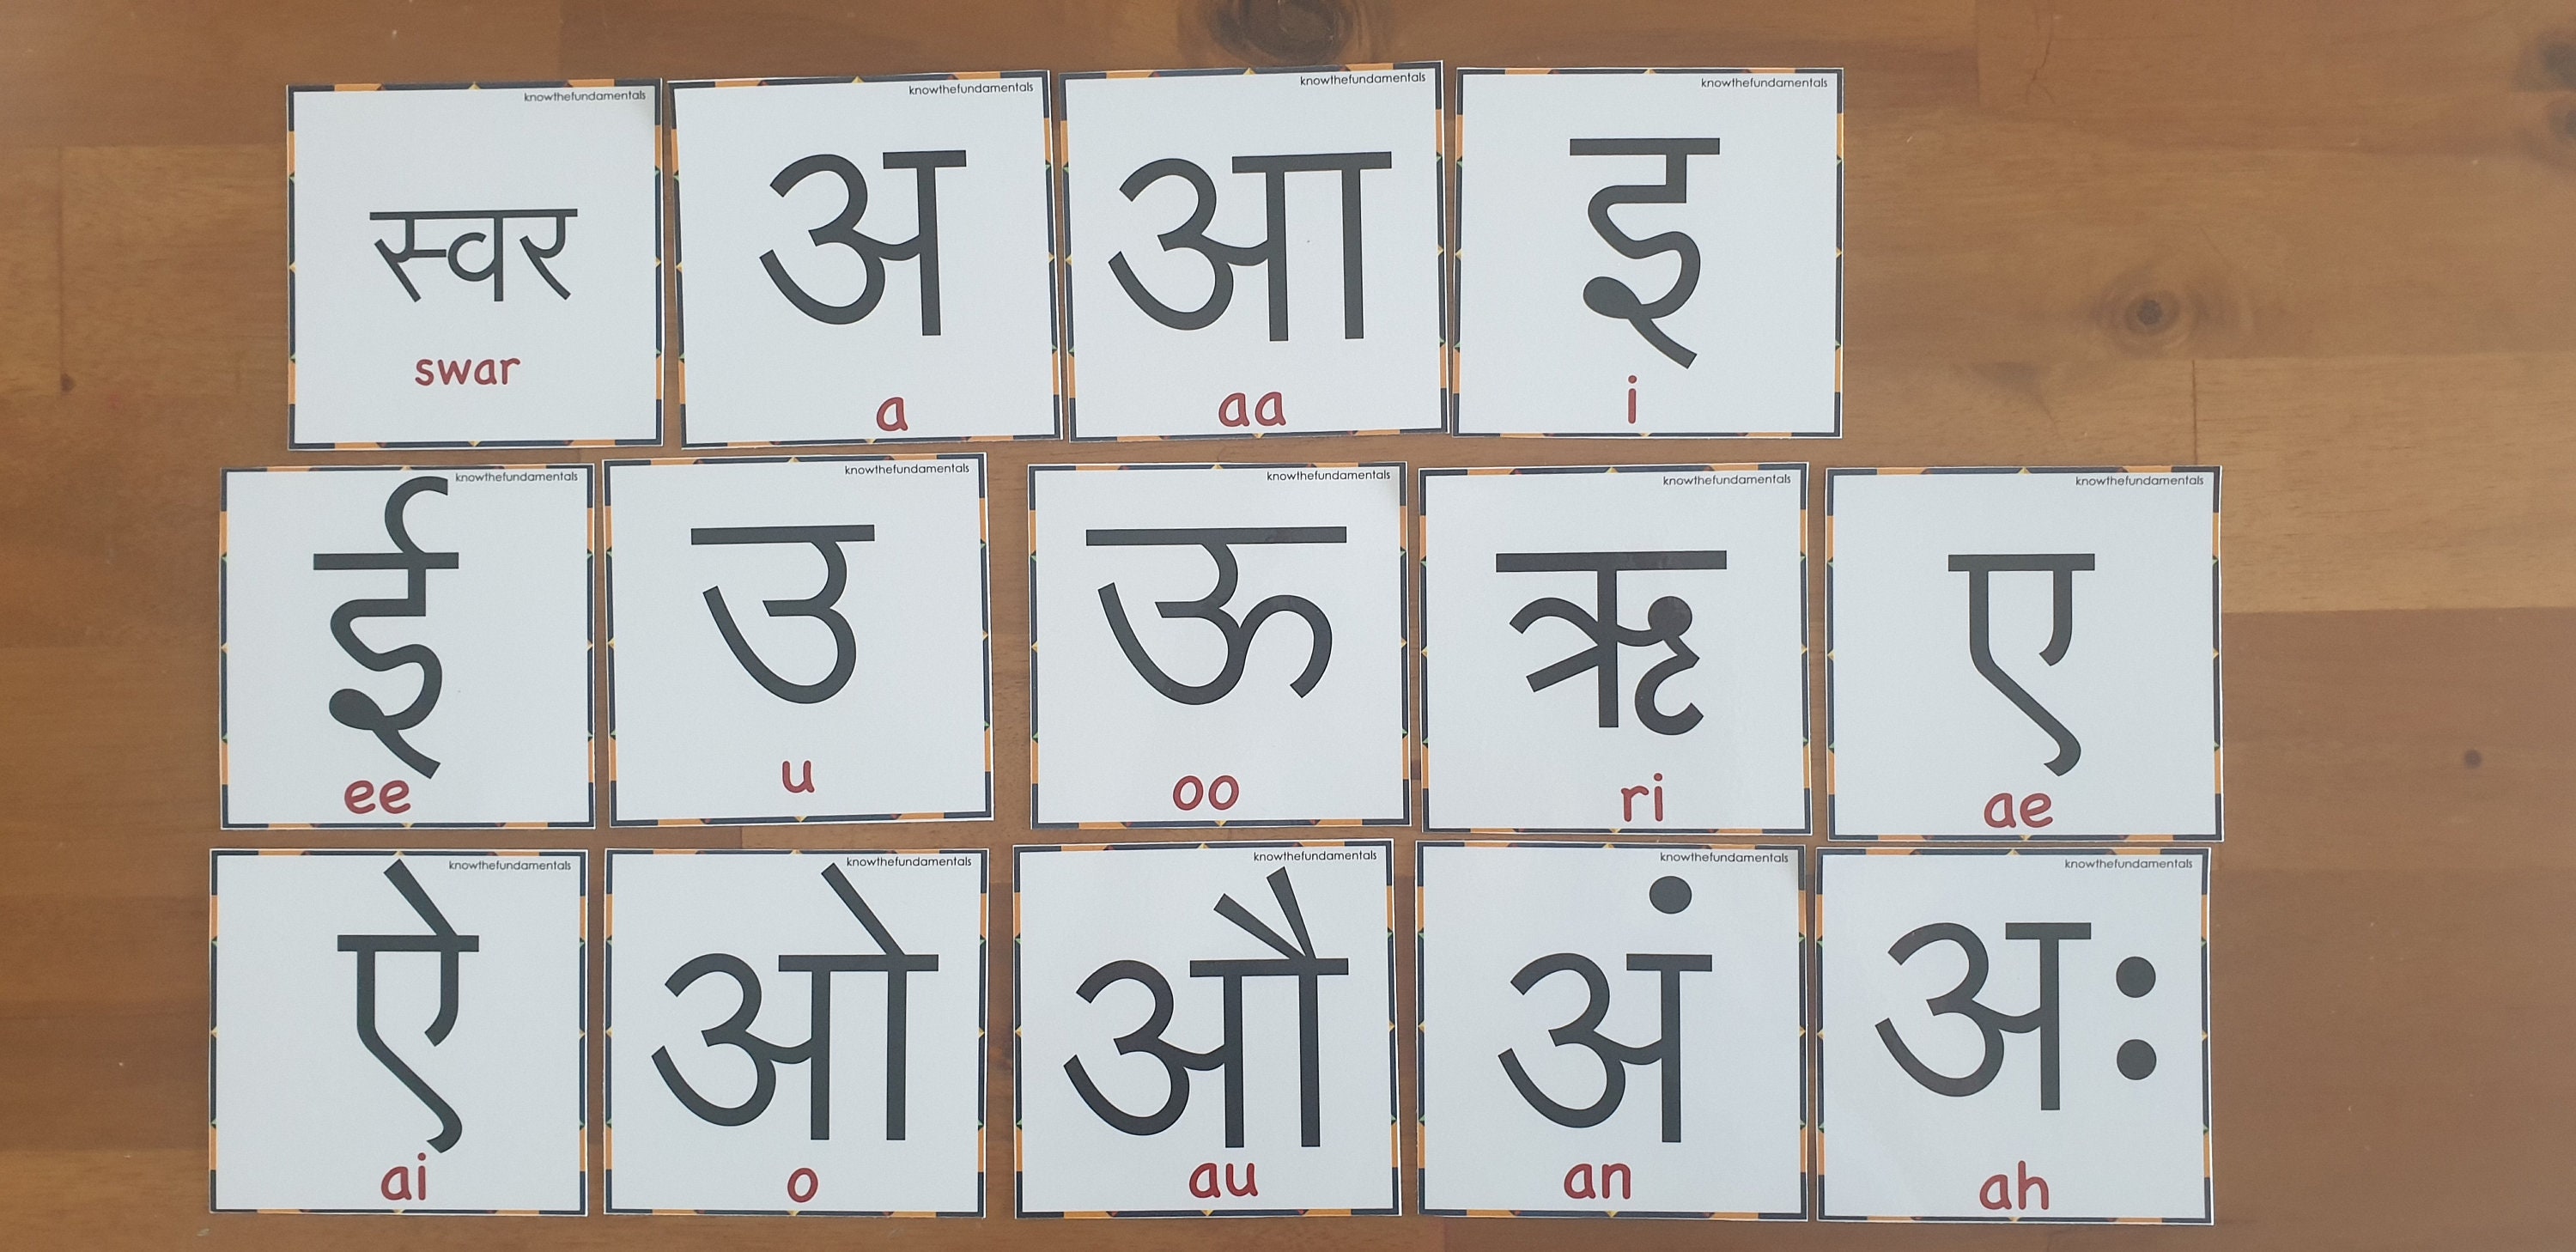 knowthefundamentals
स्वर
swar
knowthefundamentals
अ
a
knowthefundamentals
आ
aa
knowthefundamentals
इ
i
knowthefundamentals
ई
ee
knowthefundamentals
उ
u
knowthefundamentals
ऊ
oo
knowthefundamentals
ऋ
ri
knowthefundamentals
ए
ae
knowthefundamentals
ऐ
ai
knowthefundamentals
ओ
o
knowthefundamentals
औ
au
knowthefundamentals
अं
an
knowthefundamentals
अः
ah